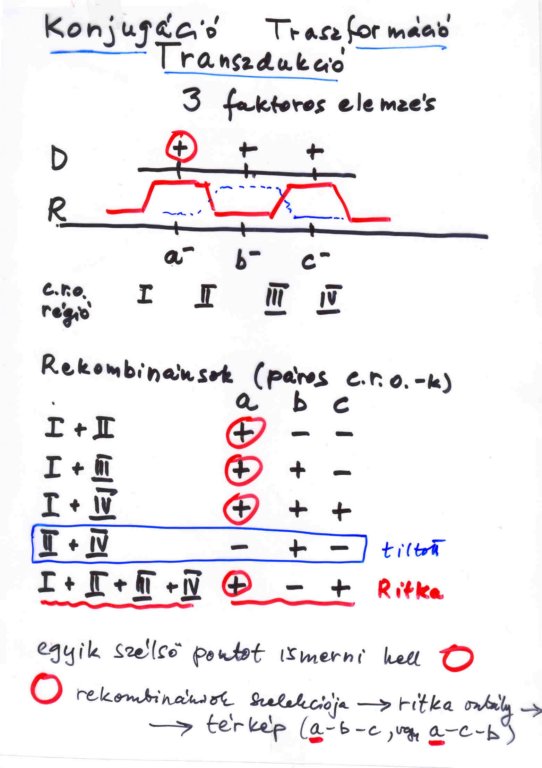 Konjugáció Traszformáció
Transzdukció
3 faktoros elemzés
D + + +
R
a⁻ b⁻ c⁻
c.r.o. I II III IV
régió
Rekombinánsok (páros c.r.o.-k)
a b c
I + II + − −
I + III + + −
I + IV + + +
II + IV − + − tiltott
I + II + III + IV + − + Ritka
egyik szélső pontot ismerni kell
rekombinánsok szelekciója → ritka osztály →
→ térkép (a-b-c, vagy a-c-b)